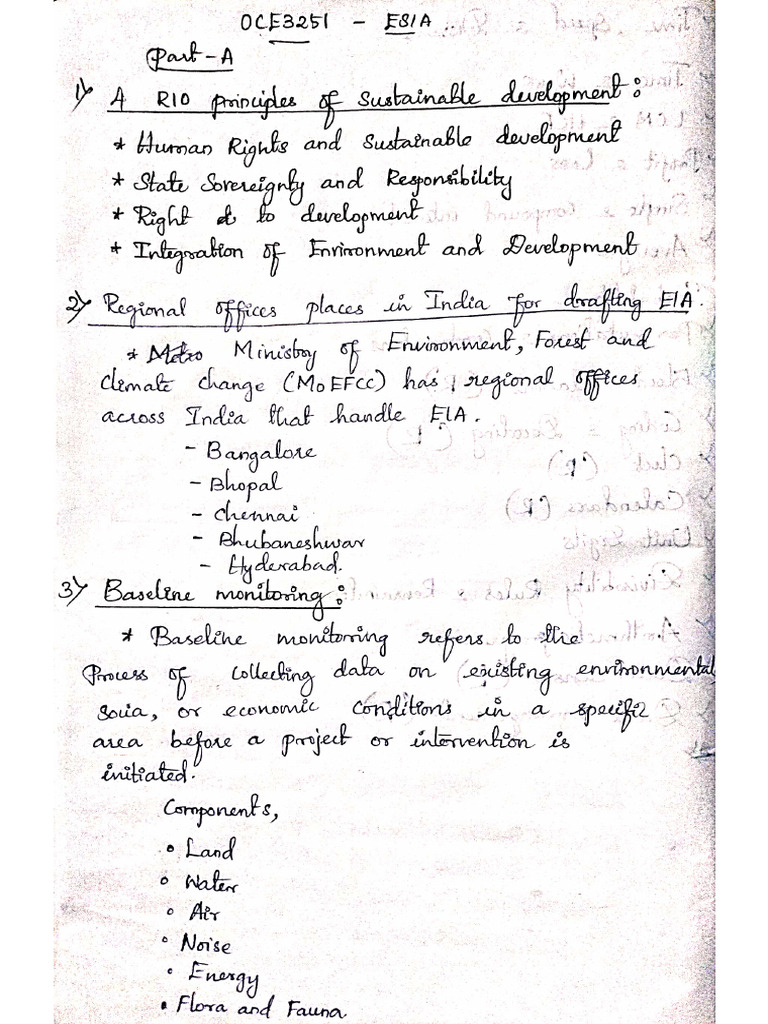 OCE3251 - ESIA
Part-A
1) A RIO principles of Sustainable development:
* Human Rights and Sustainable development
* State Sovereignty and Responsibility
* Right to development
* Integration of Environment and Development
2) Regional offices places in India for drafting EIA.
* Ministry of Environment, Forest and
climate change (MoEFCC) has, regional offices
across India that handle EIA.
- Bangalore
- Bhopal
- Chennai
- Bhubaneshwar
- Hyderabad.
3) Baseline monitoring:
* Baseline monitoring refers to the
Process of collecting data on existing environmental
socia, or economic conditions in a specific
area before a project or intervention is
initiated.
Components,
• Land
• Water
• Air
• Noise
• Energy
• Flora and Fauna